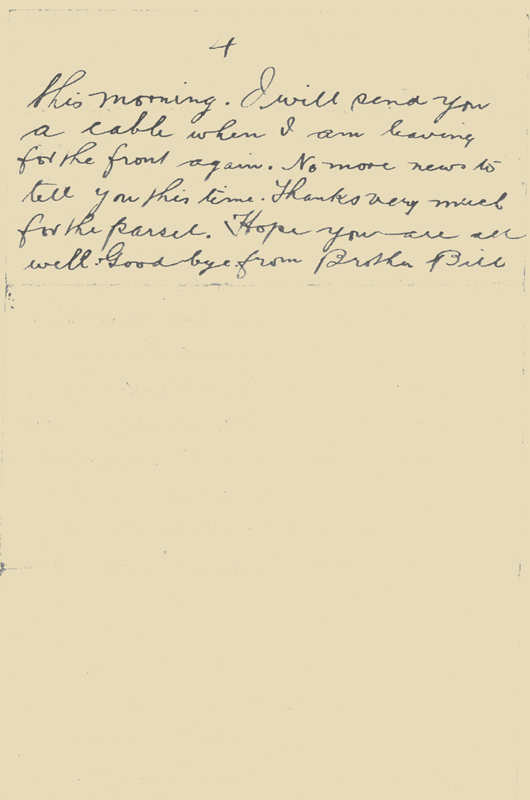 4
this morning. I will send you
a cable when I am leaving
for the front again. No more news to
tell you this time. Thanks very much
for the parsel. Hope you are all
well. Good bye from Brother Bill